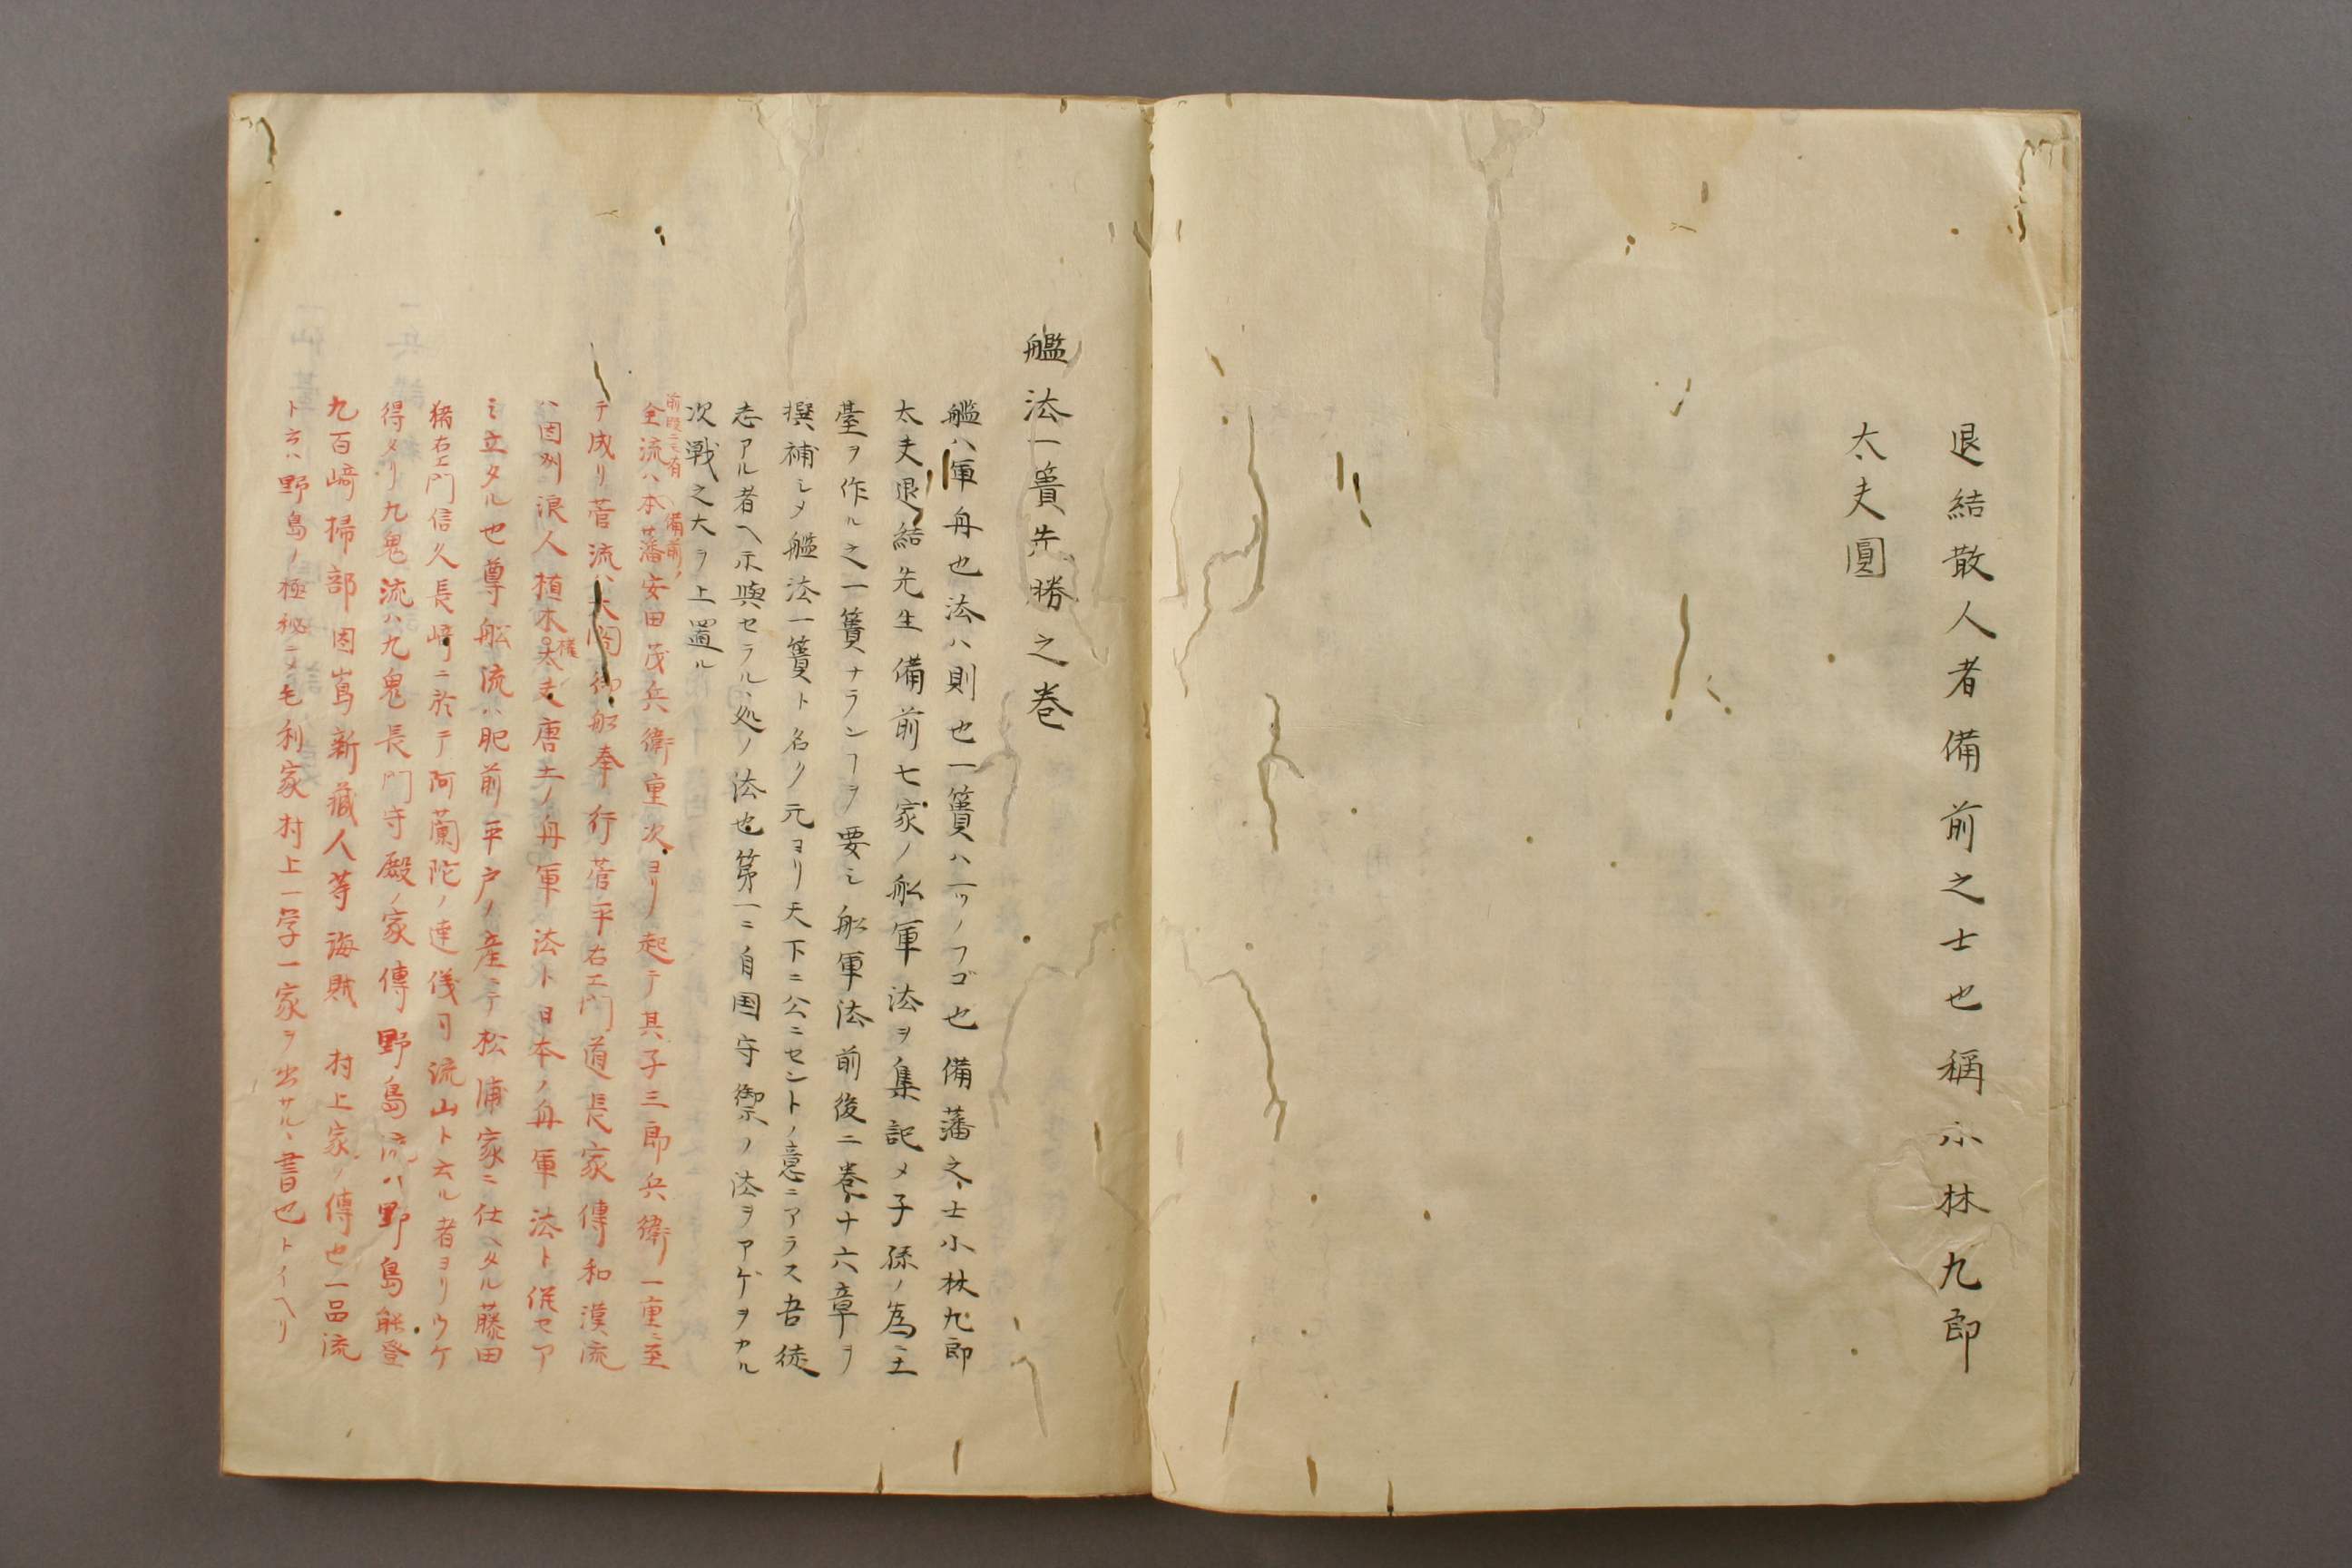 退結散人者備前之士也稱小林九郎
太夫圓
艦法一簣先勝之巻
艦ハ軍舟也法ハ則也一簣ハ一ツノフゴ也備藩之士小林九郎
太夫退結先生備前七家ノ舩軍法ヲ集記メ子孫ノ為ニ土
臺ヲ作ル之一簣ナランヿヲ要シ舩軍法前後二巻十六章ヲ
撰補シメ艦法一簣ト名ク元ヨリ天下ニ公ニセントノ意ニアラス吾徒
志アル者ヘ示與セラルヽ処ノ法也第一ニ自国守禦ノ法ヲアゲヲカル
次戰之大ヲ上置ル
前段ニモ有 備前ノ
全流ハ本藩安田茂兵衛重次ヨリ起テ其子三郎兵衛一重ニ至
テ成リ菅流ハ大閤御舩奉行菅平右エ門道長家傳和漢流
ハ因州浪人植木太夫唐土ノ舟軍法ト日本ノ舟軍法ト俣セア
権
ミ立タル也尊舩流ハ肥前平戸ノ産ニテ松浦家ニ仕ヘタル藤田
猪右エ門信久長﨑ニ於テ阿蘭陀ノ連儀司流山ト云ル者ヨリウケ
得メリ九鬼流ハ九鬼長門守殿ノ家傳野島流ハ野島能登
九百﨑掃部因嶌新藏人等海賊 村上家ノ傳也一品流
ト云ハ野島ノ極秘ニメ毛利家村上一学一家ヲ出サルヽ書也トイヘリ